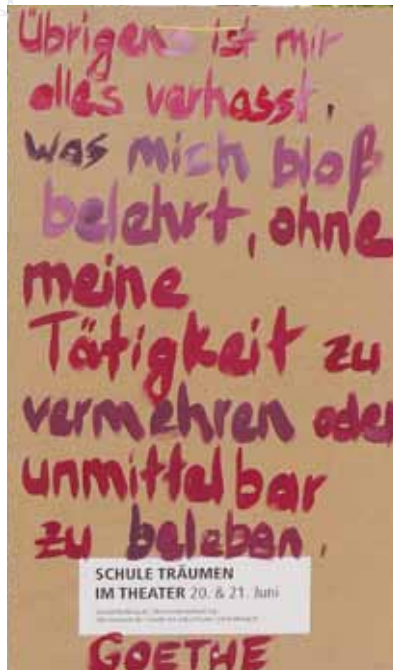 Übrigens ist mir
alles verhasst,
was mich bloß
belehrt, ohne
meine
Tätigkeit zu
vermehren oder
unmittelbar
zu beleben.
SCHULE TRÄUMEN
IM THEATER 20. & 21. Juni
GOETHE